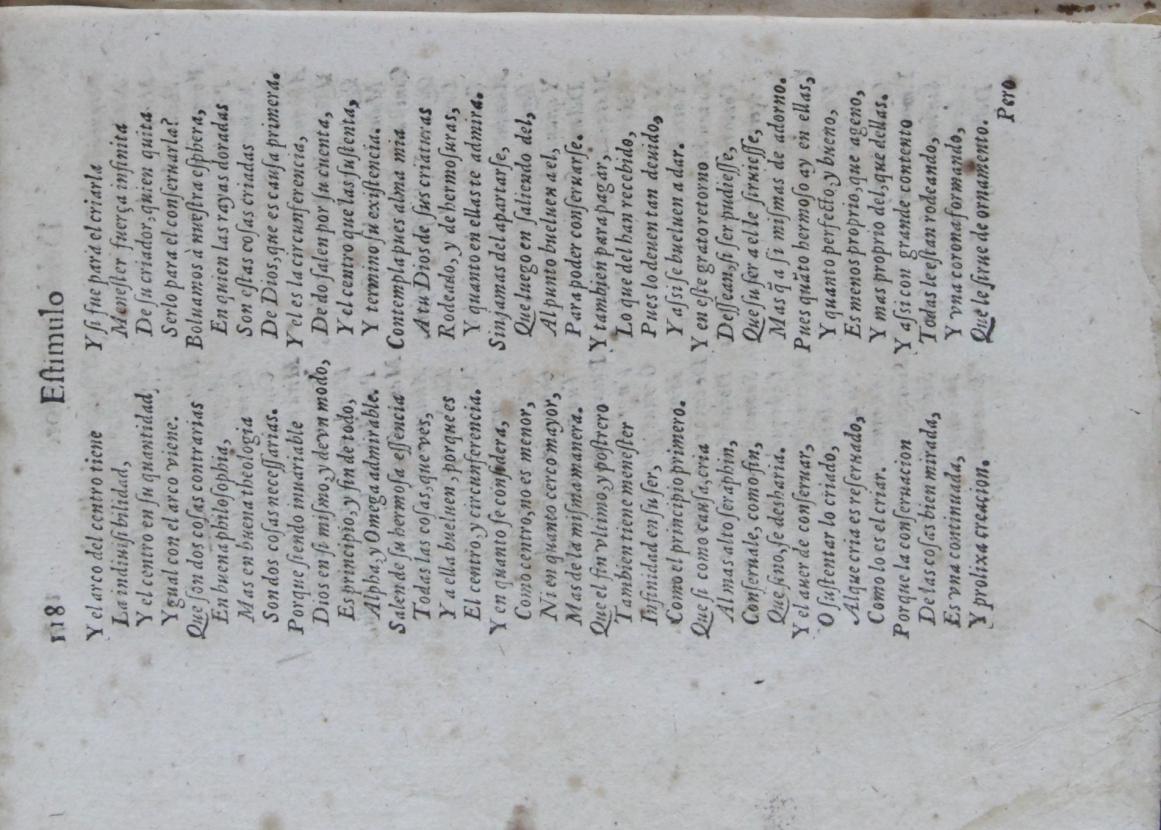 118 Eſtimulo
Y el arco del centro tiene
La indiuiſibilidad,
Y el centro en ſu quantidad
Ygual con el arco viene.
Que ſon dos coſas contrarias
En buena philoſophia,
Mas en buena theologia
Son dos coſas neceſſarias.
Porque ſiendo inuariable
Dios en ſi miſmo, y de vn modo,
Es principio, y fin de todo,
Alpha, y Omega admirable.
Salen de ſu hermoſa eſſencia
Todas las coſas, que ves,
Y a ella bueluen, porque es
El centro, y circunferencia.
Y en quanto ſe conſidera,
Como centro, no es menor,
Ni en quanto cerco mayor,
Mas de la miſma manera.
Que el fin vltimo, y poſtrero
Tambien tiene meneſter
Infinidad en ſu ſer,
Como el principio primero.
Que ſi como cauſa, cria
Al mas alto ſeraphin,
Conſeruale, como fin,
Que ſino, ſe desharia.
Y el auer de conſeruar,
O ſuſtentar lo criado,
Al que cria es reſeruado,
Como lo es el criar.
Porque la conſeruacion
De las coſas bien mirada,
Es vna continuada,
Y prolixa creacion.
Y ſi fue para el criarla
Meneſter fuerça infinita
De ſu criador, quien quita
Serlo para el conſeruarla?
Boluamos à nueſtra eſphera,
En quien las rayas doradas
Son eſtas coſas criadas
De Dios, que es cauſa primera.
Y el es la circunferencia,
De do ſalen por ſu cuenta,
Y el centro que las ſuſtenta,
Y termino ſu exiſtencia.
Contempla pues alma mia
A tu Dios de ſus criaturas
Rodeado, y de hermoſuras,
Y quanto en ellas te admira.
Sin jamas del apartarſe,
Que luego en ſaliendo del,
Al punto bueluen a el,
Para poder conſeruarſe.
Y tambien para pagar,
Lo que del han recebido,
Pues lo deuen tan deuido,
Y aſsi ſe bueluen a dar.
Y en eſte grato retorno
Deſſean, ſi ſer pudieſſe,
Que ſu ſer a el le ſiruieſſe,
Mas q̃ a ſi miſmas de adorno.
Pues quãto hermoſo ay en ellas,
Y quanto perfecto, y bueno,
Es menos proprio, que ageno,
Y mas proprio del, que dellas.
Y aſsi con grande contento
Todas le eſtan rodeando,
Y vna corona formando,
Que le ſirue de ornamento.
Pero